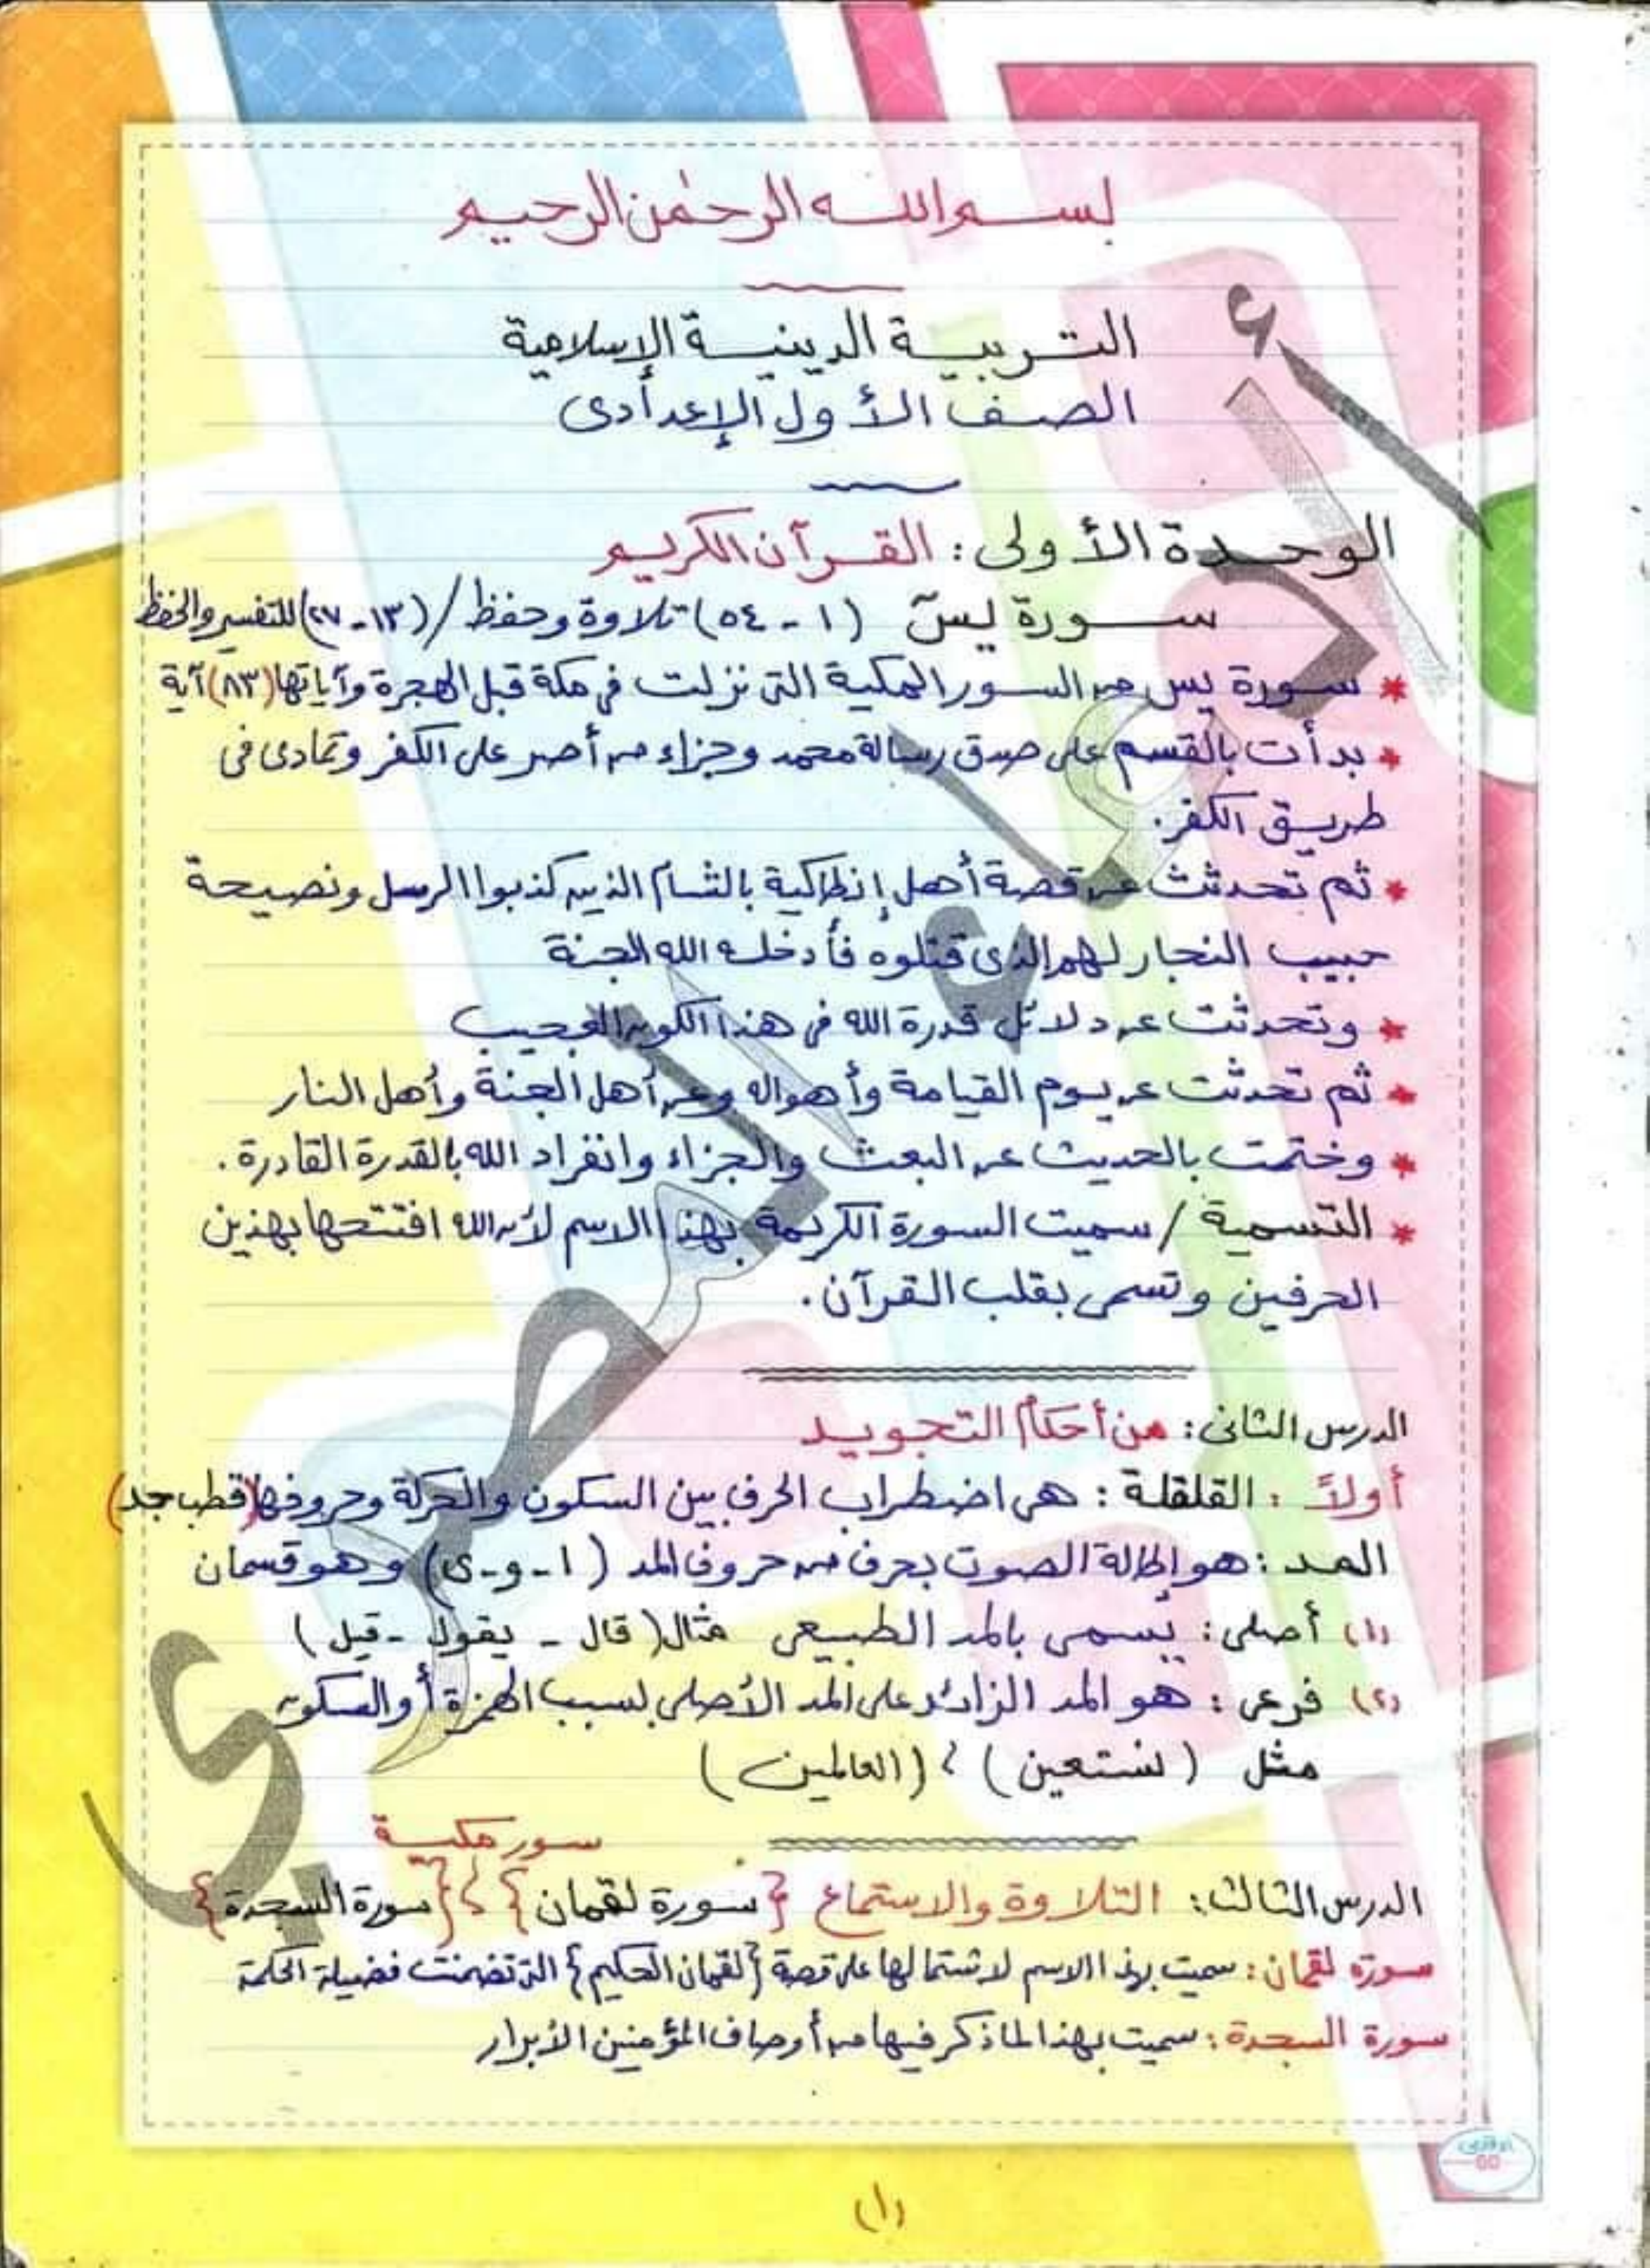 بسم الله الرحمٰن الرحيم
التربية الدينية الإسلامية
الصف الأول الإعدادى
الوحدة الأولى : القرآن الكريم
سورة يسٓ (١ - ٥٤) تلاوة وحفظ / (١٣ - ٢٧) للتفسير والحفظ
* سورة يس من السور المكية التى نزلت فى مكة قبل الهجرة وآياتها (٨٣) آية
* بدأت بالقسم على صدق رسالة محمد وجزاء من أصر على الكفر وتمادى فى
طريق الكفر.
* ثم تحدثت عن قصة أهل إنطاكية بالشام الذين كذبوا الرسل ونصيحة
حبيب النجار لهم الذى قتلوه فأدخله الله الجنة
* وتحدثت عن دلائل قدرة الله فى هذا الكون العجيب
* ثم تحدثت عن يوم القيامة وأهواله وعن أهل الجنة وأهل النار
* وختمت بالحديث عن البعث والجزاء وانفراد الله بالقدرة القادرة .
* التسمية / سميت السورة الكريمة بهذا الاسم لأن الله افتتحها بهذين
الحرفين وتسمى بقلب القرآن .
الدرس الثانى : من أحكام التجويد
أولاً : القلقلة : هى اضطراب الحرف بين السكون والحركة وحروفها (قطب جد)
المد : هو إطالة الصوت بحرف من حروف المد ( ا - و - ى) وهو قسمان
(١) أصلى : يسمى بالمد الطبيعى مثال ( قال - يقول - قيل )
(٢) فرعى : هو المد الزائد على المد الأصلى لسبب الهمزة أو السكون
مثل ( نستعين ) ، ( العالمين )
سور مكية
الدرس الثالث : التلاوة والاستماع { سورة لقمان } ، { سورة السجدة }
سورة لقمان : سميت بهذا الاسم لاشتمالها على قصة { لقمان الحكيم } التى تضمنت فضيلة الحكمة
سورة السجدة : سميت بهذا لما ذكر فيها من أوصاف المؤمنين الأبرار
(١)